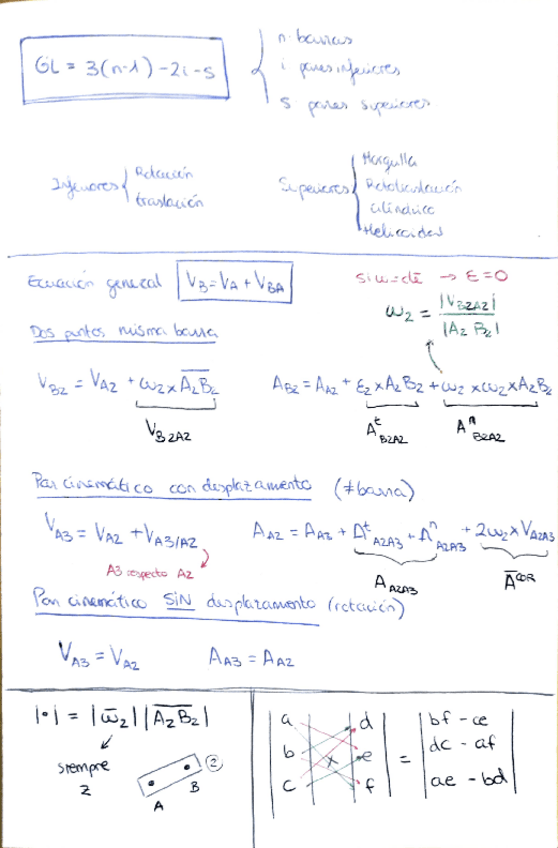 GL = 3(n-1) - 2i - s
n barras
i pares inferiores
s pares superiores
Inferiores { Rotación
traslación
Superiores { Horquilla
Rototraslación
cilíndrico
Helicoidal
Ecuación general V_B = V_A + V_BA
si ω=cte → ε=0
ω2 = |V_B2A2| / |A2 B2|
Dos puntos misma barra
V_B2 = V_A2 + ω2 x A2B2
V_B2A2
A_B2 = A_A2 + ε2 x A2B2 + ω2 x ω2 x A2B2
A^t_B2A2
A^n_B2A2
Par cinemático con desplazamiento (≠ barra)
V_A3 = V_A2 + V_A3/A2
A3 respecto A2
A_A2 = A_A3 + A^t_A2A3 + A^n_A2A3 + 2ω2 x V_A2A3
A_A2A3
A^COR
Par cinemático SIN desplazamiento (rotación)
V_A3 = V_A2
A_A3 = A_A2
|•| = |ω2| |A2B2|
siempre
z
2
A
B
a d
b x e
c f
=
bf - ce
dc - af
ae - bd